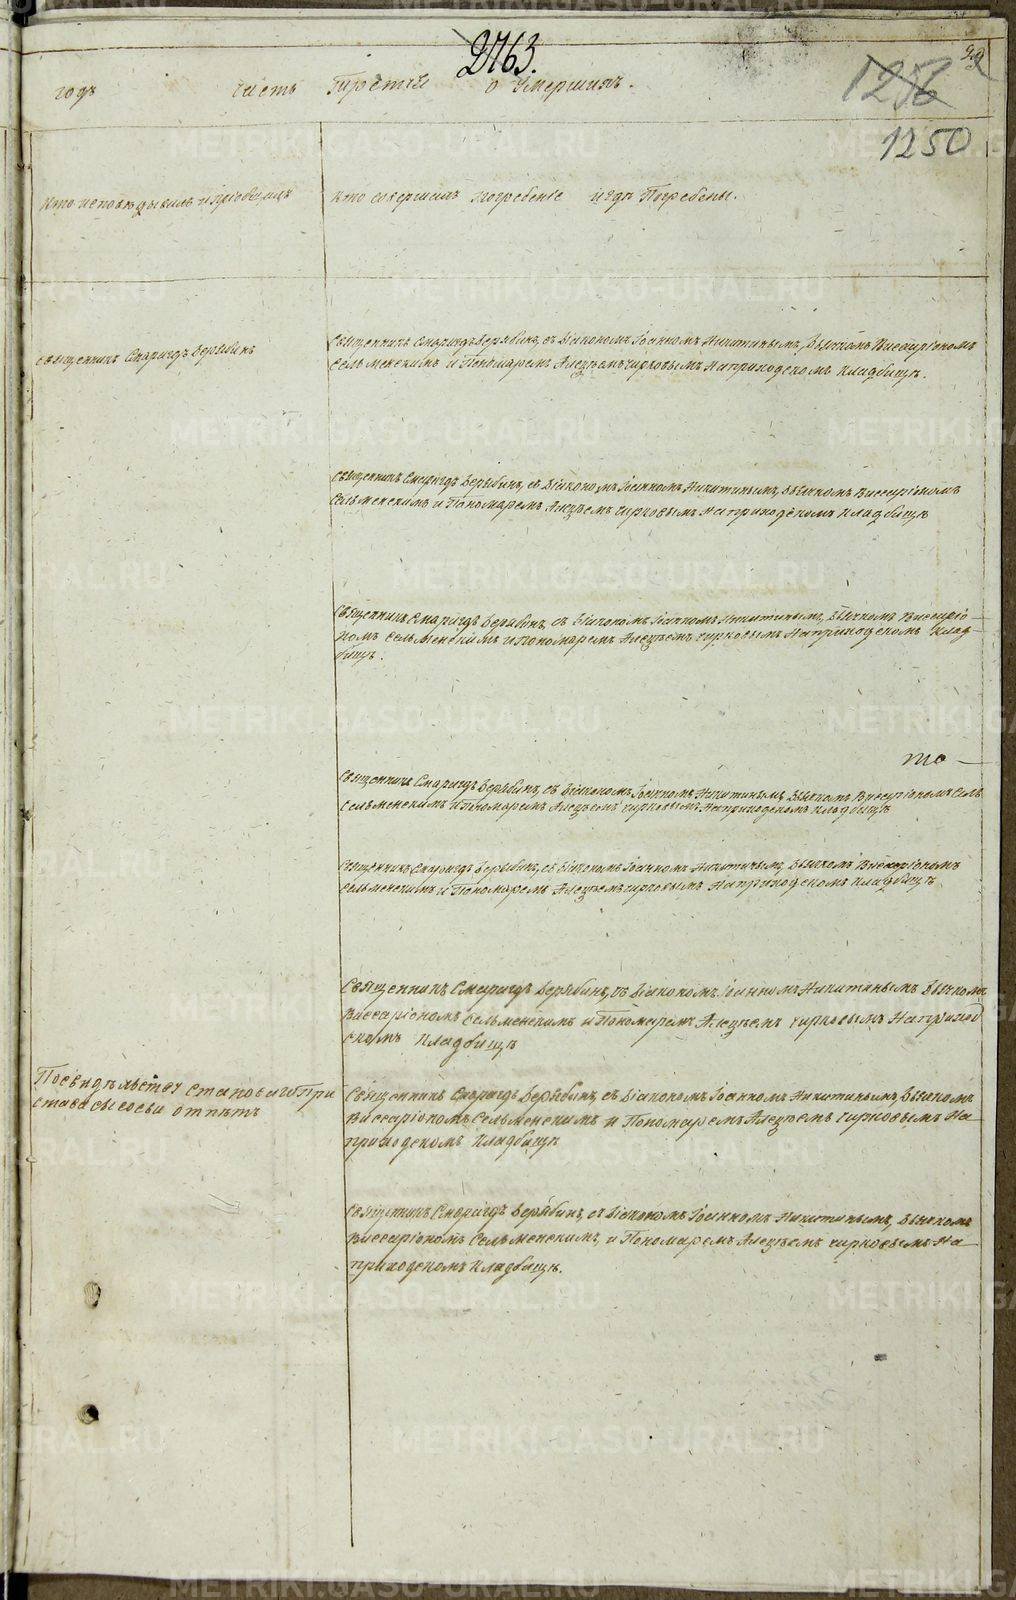 2763.
29
1256
1250
годъ часть Третія о Умершихъ.
Кто исповѣдывалъ и пріобщалъ
Кто совершалъ погребеніе и гдѣ Погребены.
Священникъ Смарагдъ Верябинъ
Священникъ Смарагдъ Верябинъ, съ Діакономъ Іоанномъ Никитинымъ, Дьячкомъ Виссаріономъ
Сельменскимъ и Пономаремъ Алексѣемъ Чирковымъ На приходскомъ кладбищѣ.
Священникъ Смарагдъ Верябинъ, съ Діакономъ Іоанномъ Никитинымъ, Дьячкомъ Виссаріономъ
Сельменскимъ и Пономаремъ Алексѣемъ Чирковымъ На приходскомъ кладбищѣ
Священникъ Смарагдъ Верябинъ, съ Діакономъ Іоанномъ Никитинымъ, Дьячкомъ Виссаріо-
номъ Сельменскимъ и Пономаремъ Алексѣемъ Чирковымъ На приходскомъ клад-
бищѣ.
то —
Священникъ Смарагдъ Верябинъ, съ Діакономъ Іоанномъ Никитинымъ, Дьячкомъ Виссаріономъ Сель
Сельменскимъ и Пономаремъ Алексѣемъ Чирковымъ На приходскомъ кладбищѣ
Священникъ Смарагдъ Верябинъ, съ Діакономъ Іоанномъ Никитинымъ, Дьячкомъ Виссаріономъ
Сельменскимъ и Пономаремъ Алексѣемъ Чирковымъ На приходскомъ кладбищѣ.
Священникъ Смарагдъ Верябинъ, съ Діакономъ Іоанномъ Никитинымъ Дьячкомъ
Виссаріономъ Сельменскимъ и Пономаремъ Алексѣемъ Чирковымъ На приход
скомъ кладбищѣ
По свидѣльству Становаго При
става
отпѣтъ
Священникъ Смарагдъ Верябинъ, съ Діакономъ Іоанномъ Никитинымъ, Дьячкомъ
Виссаріономъ Сельменскимъ и Пономаремъ Алексѣемъ Чирковымъ На
приходскомъ кладбищѣ
Священникъ Смарагдъ Верябинъ, съ Діакономъ Іоанномъ Никитинымъ, Дьячкомъ
Виссаріономъ Сельменскимъ, и Пономаремъ Алексѣемъ Чирковымъ На
приходскомъ кладбищѣ.
METRIKI.GASO-URAL.RU